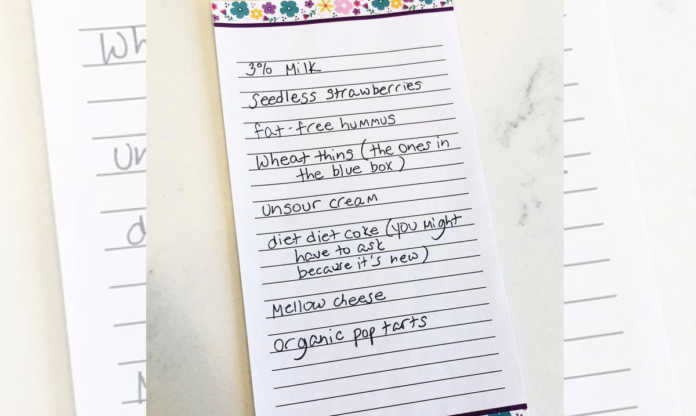 3% Milk
Seedless strawberries
fat-free hummus
Wheat thing (the ones in
the blue box)
Unsour cream
diet diet coke (you might
have to ask
because it's new)
Mellow cheese
Organic pop tarts